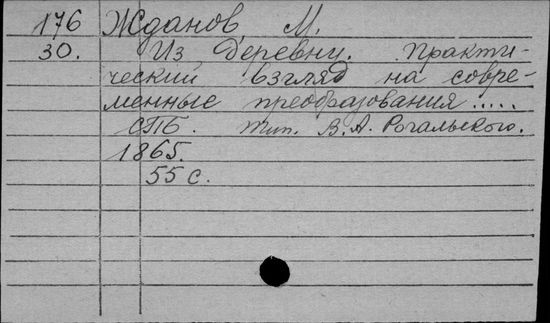 176 Жданов, М.
30. Из деревни. Практи-
ческий взгляд на совре-
менные преобразования.....
СПБ. Тип. В.А. Рогальского.
1865.
55 с.